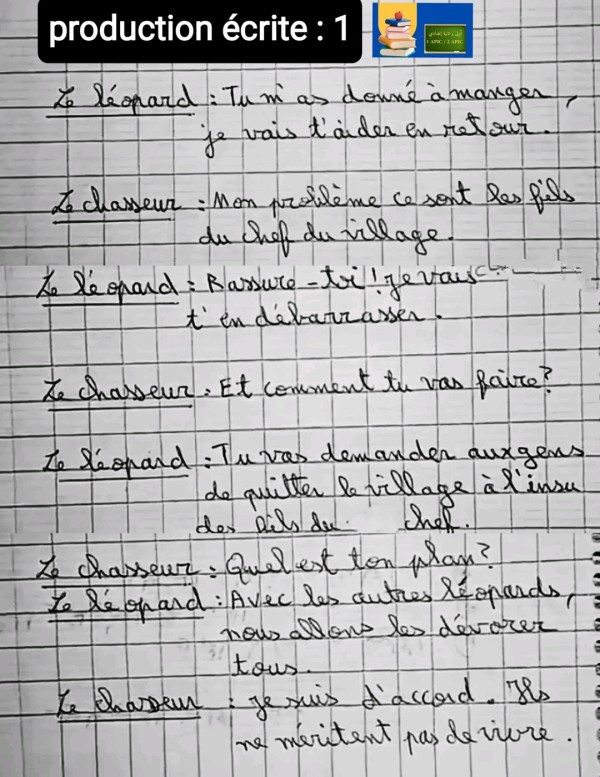 production écrite : 1
Le léopard : Tu m'as donné à manger,
je vais t'aider en retour.
Le chasseur : Mon problème ce sont les fils
du chef du village.
Le léopard : Rassure-toi ! je vais
t'en débarrasser.
Le chasseur : Et comment tu vas faire ?
Le léopard : Tu vas demander aux gens
de quitter le village à l'insu
des fils du chef.
Le chasseur : Quel est ton plan ?
Le léopard : Avec les autres léopards,
nous allons les dévorer
tous.
Le chasseur : je suis d'accord. Ils
ne méritent pas de vivre.